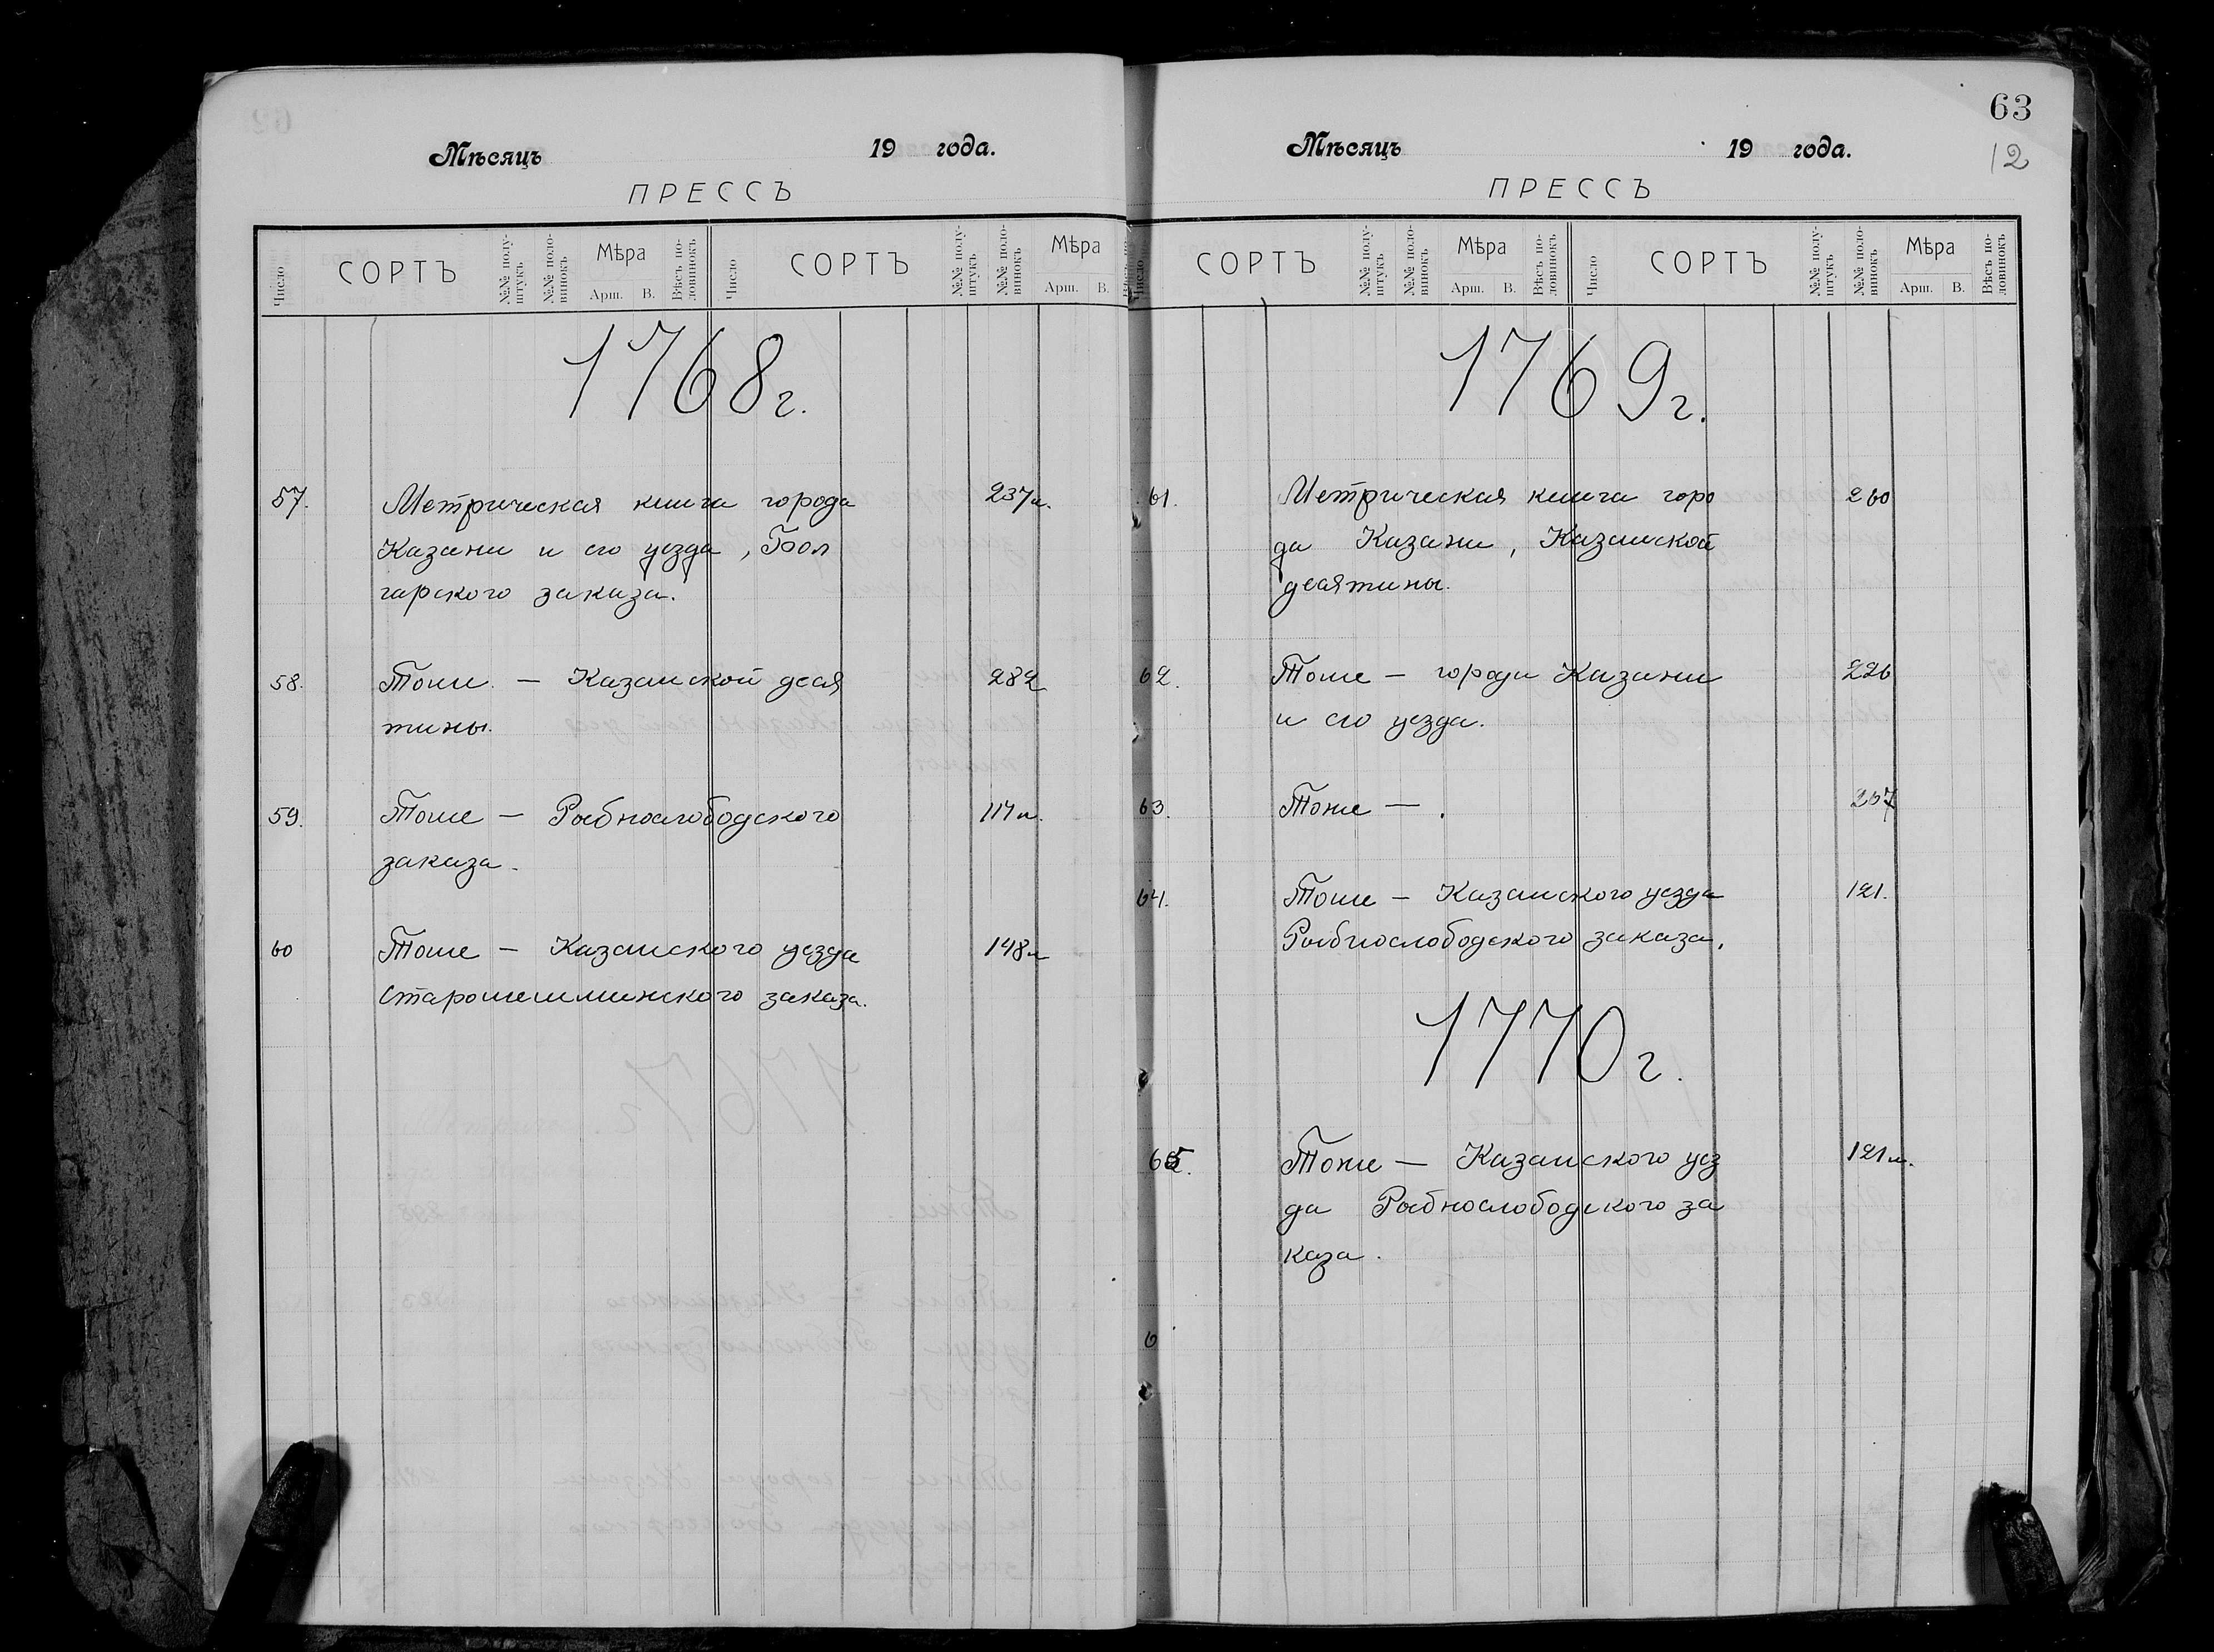 Мѣсяцъ 19 года.
ПРЕССЪ
Число СОРТЪ №№ полу-штукъ №№ поло-винокъ Мѣра Арш. В. Вѣсъ по-ловинокъ Число СОРТЪ №№ полу-штукъ №№ поло-винокъ Мѣра Арш. В.
1768 г.
57. Метрическая книга города 237 л.
Казани и его уезда, Бол
гарского заказа.
58. Тоже – Казанской деся 282
тины.
59. Тоже – Рыбнослободского 117 л.
заказа.
60 Тоже – Казанского уезда 148 л
Старошешминского заказа.
63
12
Мѣсяцъ 19 года.
ПРЕССЪ
Число СОРТЪ №№ полу-штукъ №№ поло-винокъ Мѣра Арш. В. Вѣсъ по-ловинокъ Число СОРТЪ №№ полу-штукъ №№ поло-винокъ Мѣра Арш. В. Вѣсъ по-ловинокъ
1769 г.
61. Метрическая книга горо 260
да Казани, Казанской
десятины.
62. Тоже – города Казани 226
и его уезда.
63. Тоже – .
64. Тоже – Казанского уезда 121.
Рыбнослободского заказа.
1770 г.
65. Тоже – Казанского уез 121 л.
да Рыбнослободского за
каза.